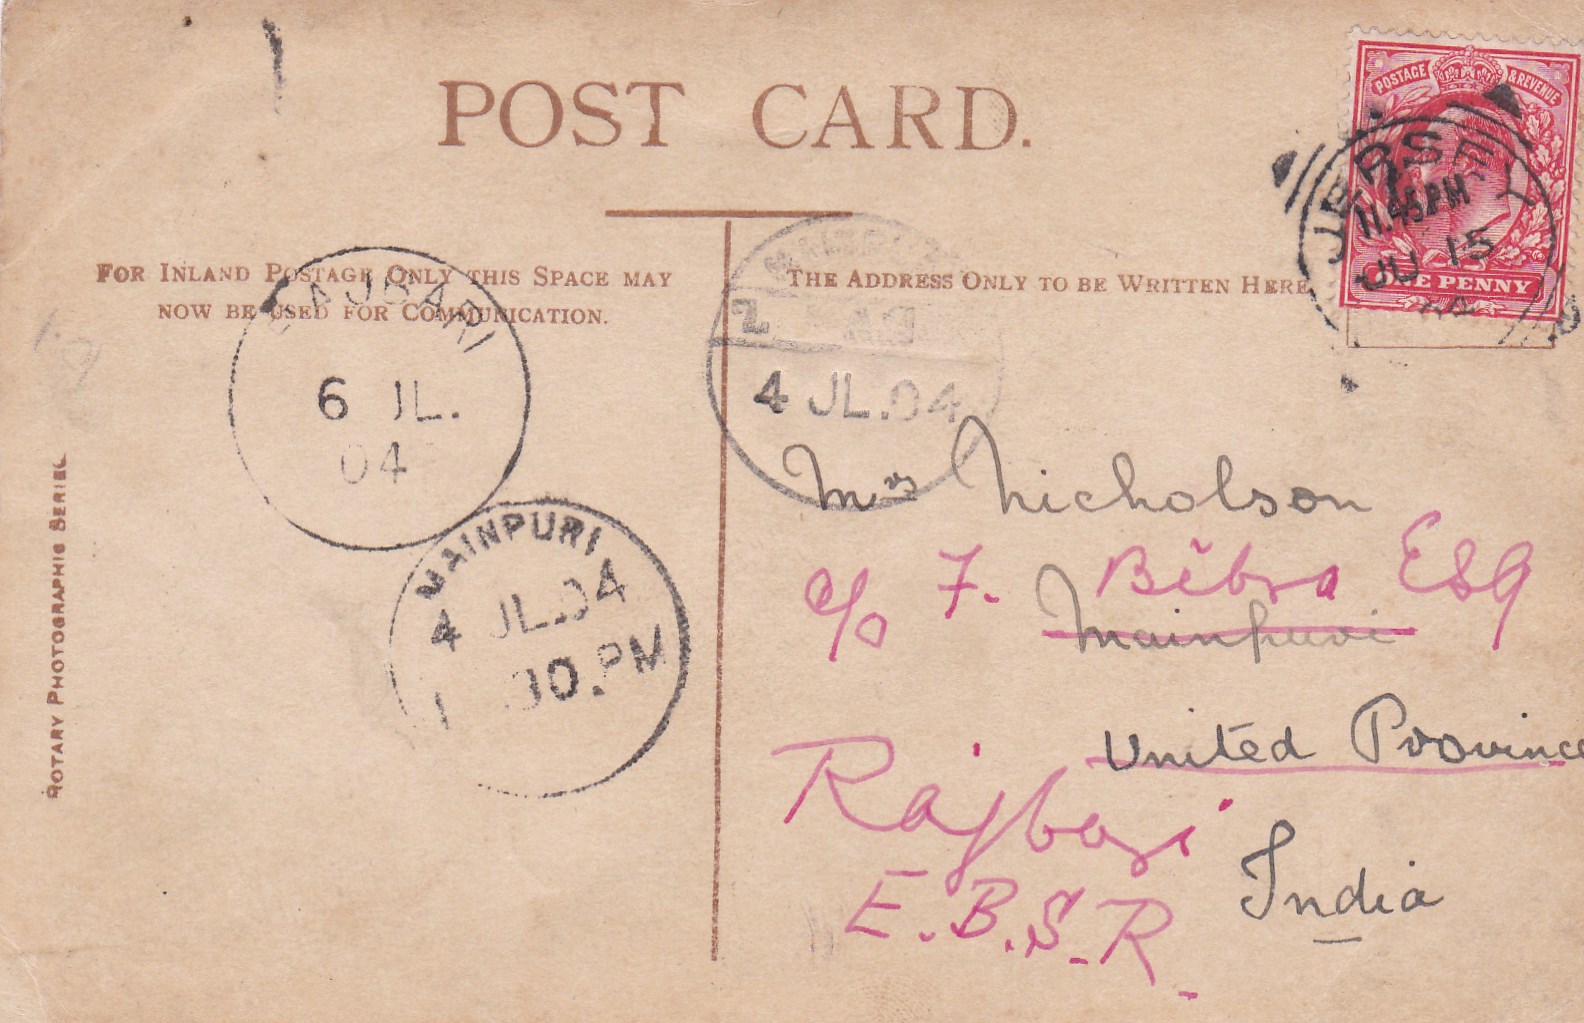 POST CARD.
POSTAGE & REVENUE
JERSEY
11.45PM
JU 15
ONE PENNY
FOR INLAND POSTAGE ONLY THIS SPACE MAY
NOW BE USED FOR COMMUNICATION.
THE ADDRESS ONLY TO BE WRITTEN HERE
RAJBARI
6 JL.
04
4 JL.04
MAINPURI
4 JL.04
.30.PM
ROTARY PHOTOGRAPHIC SERIES
Mrs Nicholson
c/o F. Bibra Esq
Mainpuri
United Province
Rajbari
India
E.B.S.R.